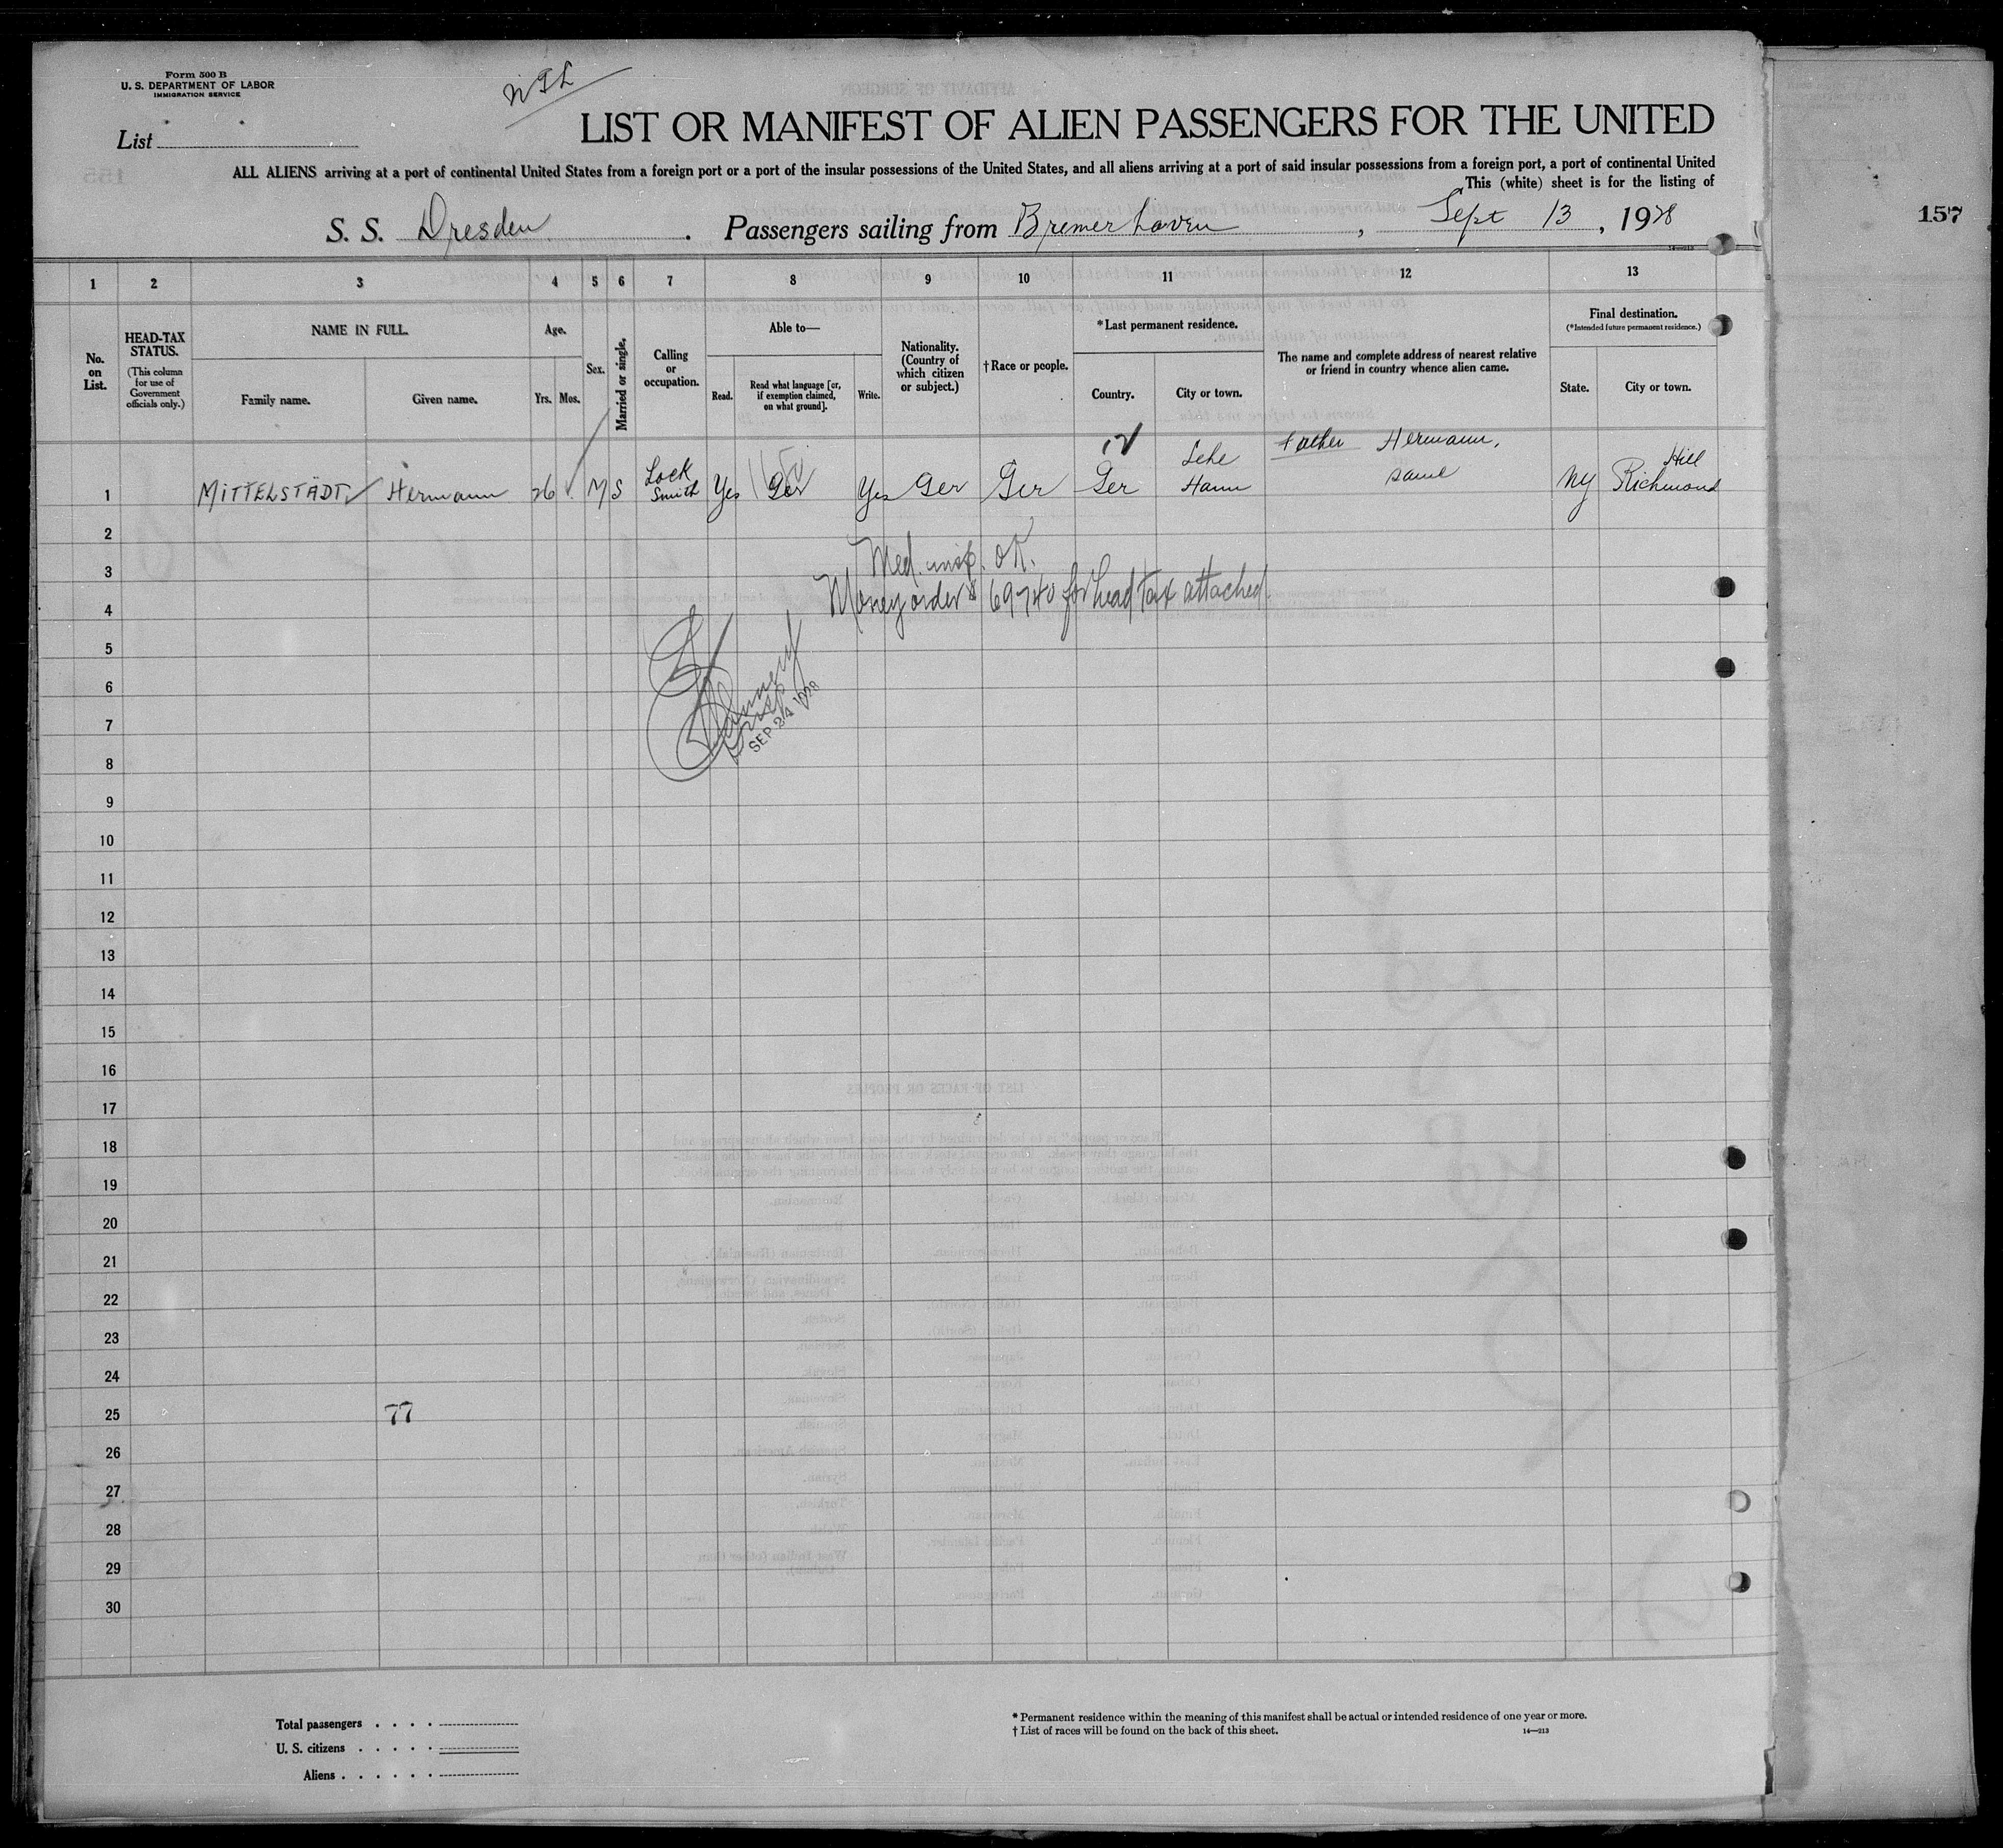 Form 500 B
U. S. DEPARTMENT OF LABOR
IMMIGRATION SERVICE
List
LIST OR MANIFEST OF ALIEN PASSENGERS FOR THE UNITED
ALL ALIENS arriving at a port of continental United States from a foreign port or a port of the insular possessions of the United States, and all aliens arriving at a port of said insular possessions from a foreign port, a port of continental United
This (white) sheet is for the listing of
155
157
S. S. Dresden. Passengers sailing from Bremerhaven, Sept 13, 1928
1 2 3 4 5 6 7 8 9 10 11 12 13
No. on List.
HEAD-TAX STATUS.
(This column for use of Government officials only.)
NAME IN FULL.
Family name. Given name.
Age.
Yrs. Mos.
Sex.
Married or single.
Calling or occupation.
Able to—
Read. Read what language [or, if exemption claimed, on what ground]. Write.
Nationality. (Country of which citizen or subject.)
†Race or people.
*Last permanent residence.
Country. City or town.
The name and complete address of nearest relative or friend in country whence alien came.
Final destination.
(*Intended future permanent residence.)
State. City or town.
1 MITTELSTÄDT, Hermann 26 M S Lock Smith Yes Ger Yes Ger Ger Ger Lehe Hann Father Hermann, same NY Richmond Hill
2
3 Med. insp. OK.
4 Money order 69740 for head tax attached.
5
6
7 SEP 24 1928
8
9
10
11
12
13
14
15
16
17
18
19
20
21
22
23
24
25 77
26
27
28
29
30
Total passengers . . . .
U. S. citizens . . . . .
Aliens . . . . . .
* Permanent residence within the meaning of this manifest shall be actual or intended residence of one year or more.
† List of races will be found on the back of this sheet.
14—213